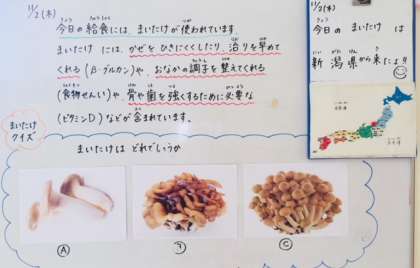 11/2(木)
今日の給食には、まいたけが使われています。
まいたけ には、かぜをひきにくくしたり、治りを早めて
くれる(β-グルカン)や、おなかの調子を整えてくれる
(食物せんい)や、骨や歯を強くするために必要な
(ビタミンD)などが含まれています。
まいたけ
クイズ
まいたけは どれでしょうか
Ⓐ
Ⓑ
Ⓒ
11/2(木)
今日の まいたけ は
新潟県から来たよ!!